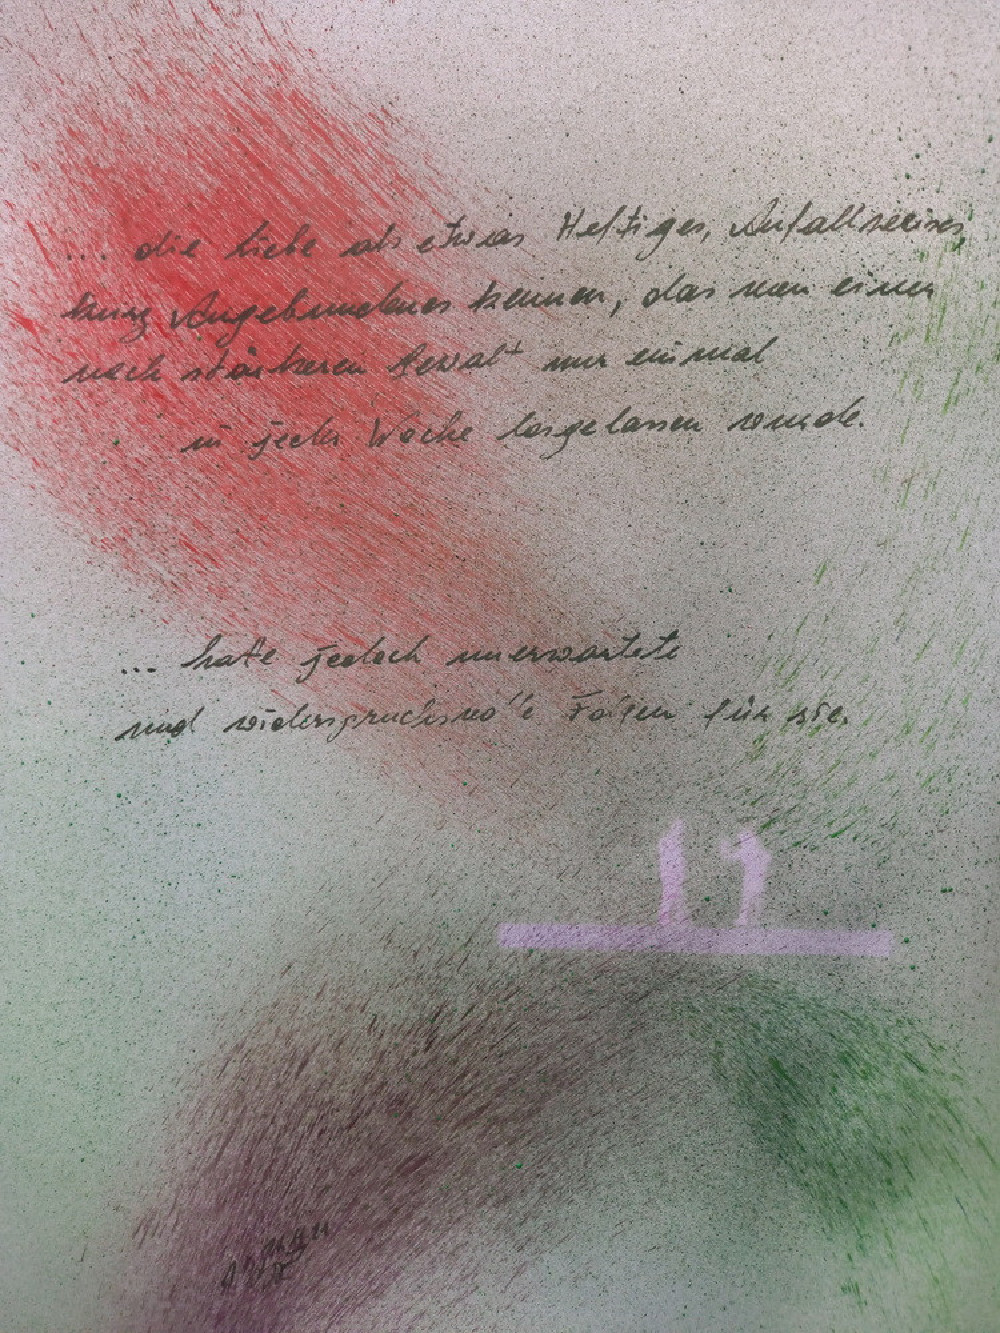 ... die liebe als etwas Heftiges, Anfallweises
kurz Angebundenes kennen, das von einer
noch stärkeren Gewalt nur einmal
in jeder Woche losgelassen wurde.
... hatte jedoch unerwartete
und widerspruchsvolle Folgen für sie.
11